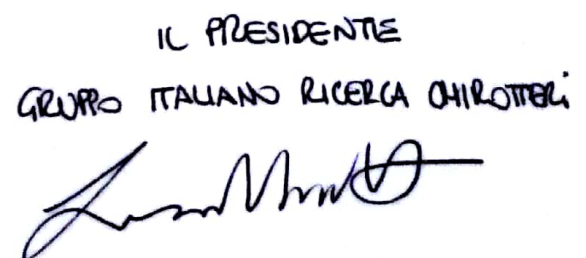 IL PRESIDENTE
GRUPPO ITALIANO RICERCA CHIROTTERI